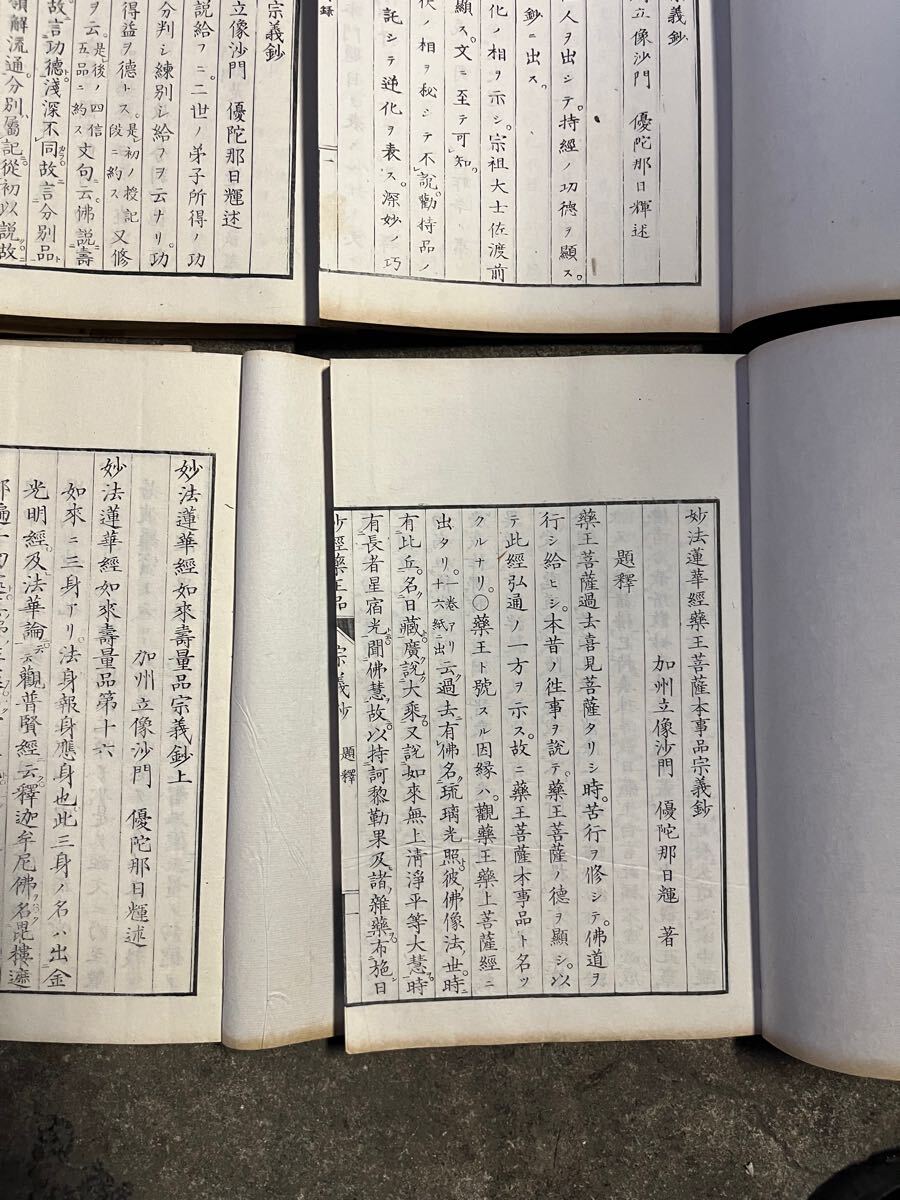 宗義鈔
立像沙門 優陀那日輝述
人ヲ出シテ。持經ノ功德ヲ顯ス。
鈔ニ出ス。
化ノ相ヲ示シ。宗祖大士佐渡前
顯ス。文ニ至テ可知。
伏ノ相ヲ秘シテ不說。勸持品ノ
託シテ逆化ヲ表ス。深妙ノ巧
錄
一
宗義鈔
立像沙門 優陀那日輝述
說給フニ。二世ノ弟子所得ノ功
分判シ練別シ給フヲ云ナリ。功
得益ヲ德トス。是初ノ授記段ニ約ス 又修
ヲ云。是後ノ四信五品ニ約ス 文句云佛說壽
故言功德淺深不同故言分別品
領解流通分別屬記從初以說故
妙法蓮華經藥王菩薩本事品宗義鈔
加州立像沙門 優陀那日輝 著
題釋
藥王菩薩過去喜見菩薩タリシ時。苦行ヲ修シテ。佛道ヲ
行シ給ヒシ。本昔ノ徃事ヲ說テ。藥王菩薩ノ德ヲ顯シ。以
テ此經弘通ノ一方ヲ示ス。故ニ藥王菩薩本事品ト名ツ
クルナリ。〇藥王ト號スル因緣ハ。觀藥王藥上菩薩經ニ
出タリ。一卷アリ十六紙ニ出 云過去有佛名琉璃光照彼佛像法世時
有比丘。名日藏廣說大乘又說如來無上清淨平等大慧時
有長者星宿光聞佛慧故。以持訶黎勒果及諸雜藥布施日
妙經藥王品 宗義鈔 題釋 一
妙法蓮華經如來壽量品宗義鈔上
加州立像沙門 優陀那日輝述
妙法蓮華經如來壽量品第十六
如來ニ三身アリ。法身報身應身也。此三身ノ名ハ出金
光明經。及法華論云觀普賢經云釋迦牟尼佛名毘樓遮